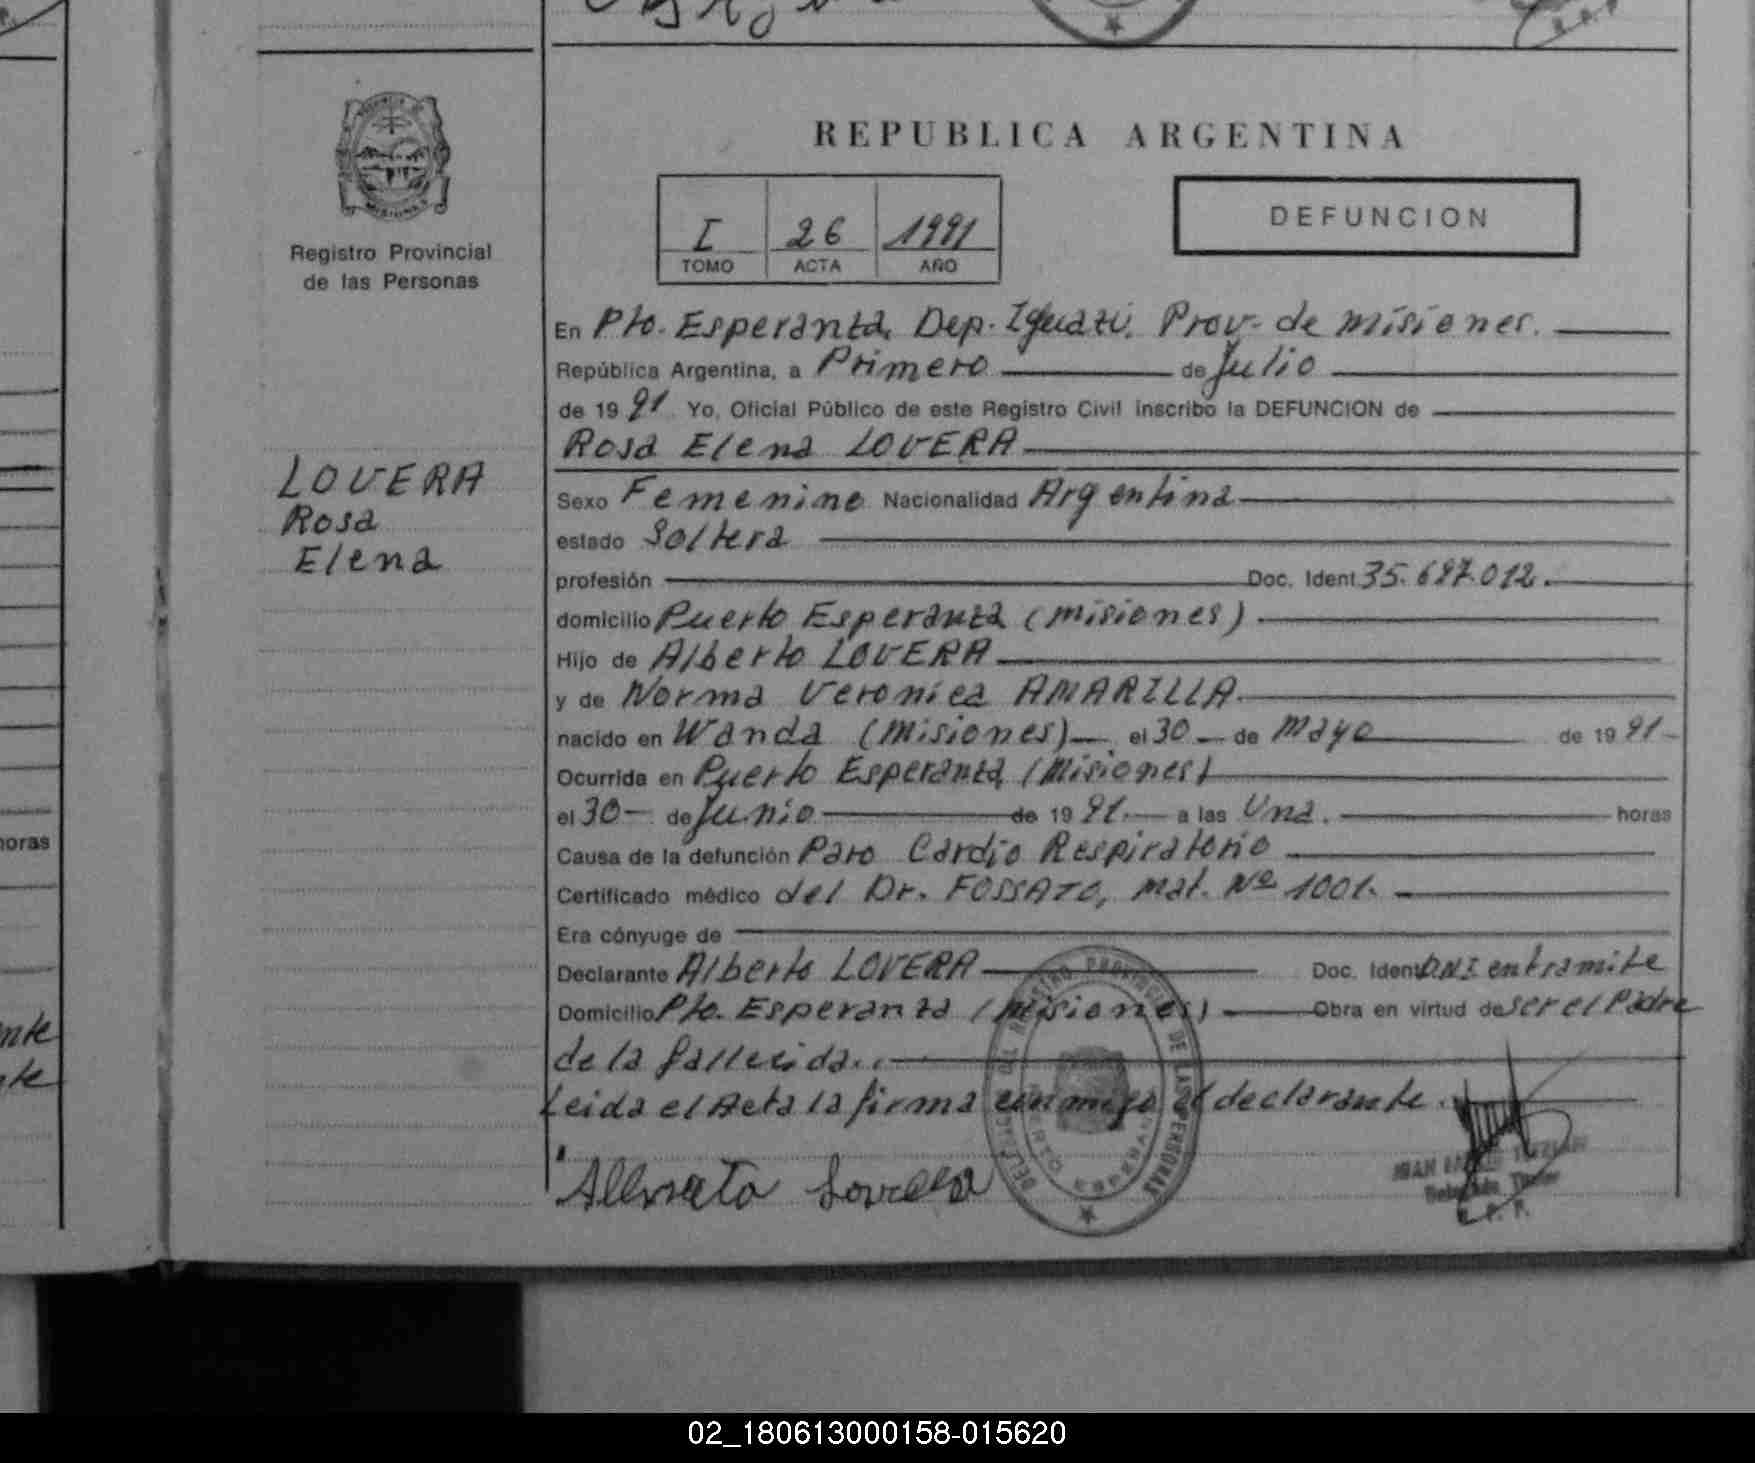 REPUBLICA ARGENTINA
Registro Provincial
de las Personas
I 26 1991
TOMO ACTA AÑO
DEFUNCION
LOVERA
Rosa
Elena
En Pto. Esperanza, Dep. Iguazú. Prov. de Misiones.
República Argentina, a Primero de Julio
de 19 91 Yo, Oficial Público de este Registro Civil inscribo la DEFUNCION de
Rosa Elena LOVERA
Sexo Femenino Nacionalidad Argentina
estado Soltera
profesión Doc. Ident. 35.697.012.
domicilio Puerto Esperanza (Misiones)
Hijo de Alberto LOVERA
y de Norma Veronica AMARILLA.
nacido en Wanda (Misiones) el 30 de Mayo de 19 91
Ocurrida en Puerto Esperanza (Misiones)
el 30 de Junio de 19 91. a las Una. horas
Causa de la defunción Paro Cardio Respiratorio
Certificado médico del Dr. FOSSATO, mat. Nº 1001.
Era cónyuge de
Declarante Alberto LOVERA Doc. Ident. D.N.I entramite
Domicilio Pto. Esperanza (Misiones) Obra en virtud de ser el Padre
de la fallecida..
Leida el Acta la firma conmigo el declarante.
DEL REGISTRO PROVINCIAL DE LAS PERSONAS
PUERTO ESPERANZA
Titular
R. P. P.
horas
02_180613000158-015620